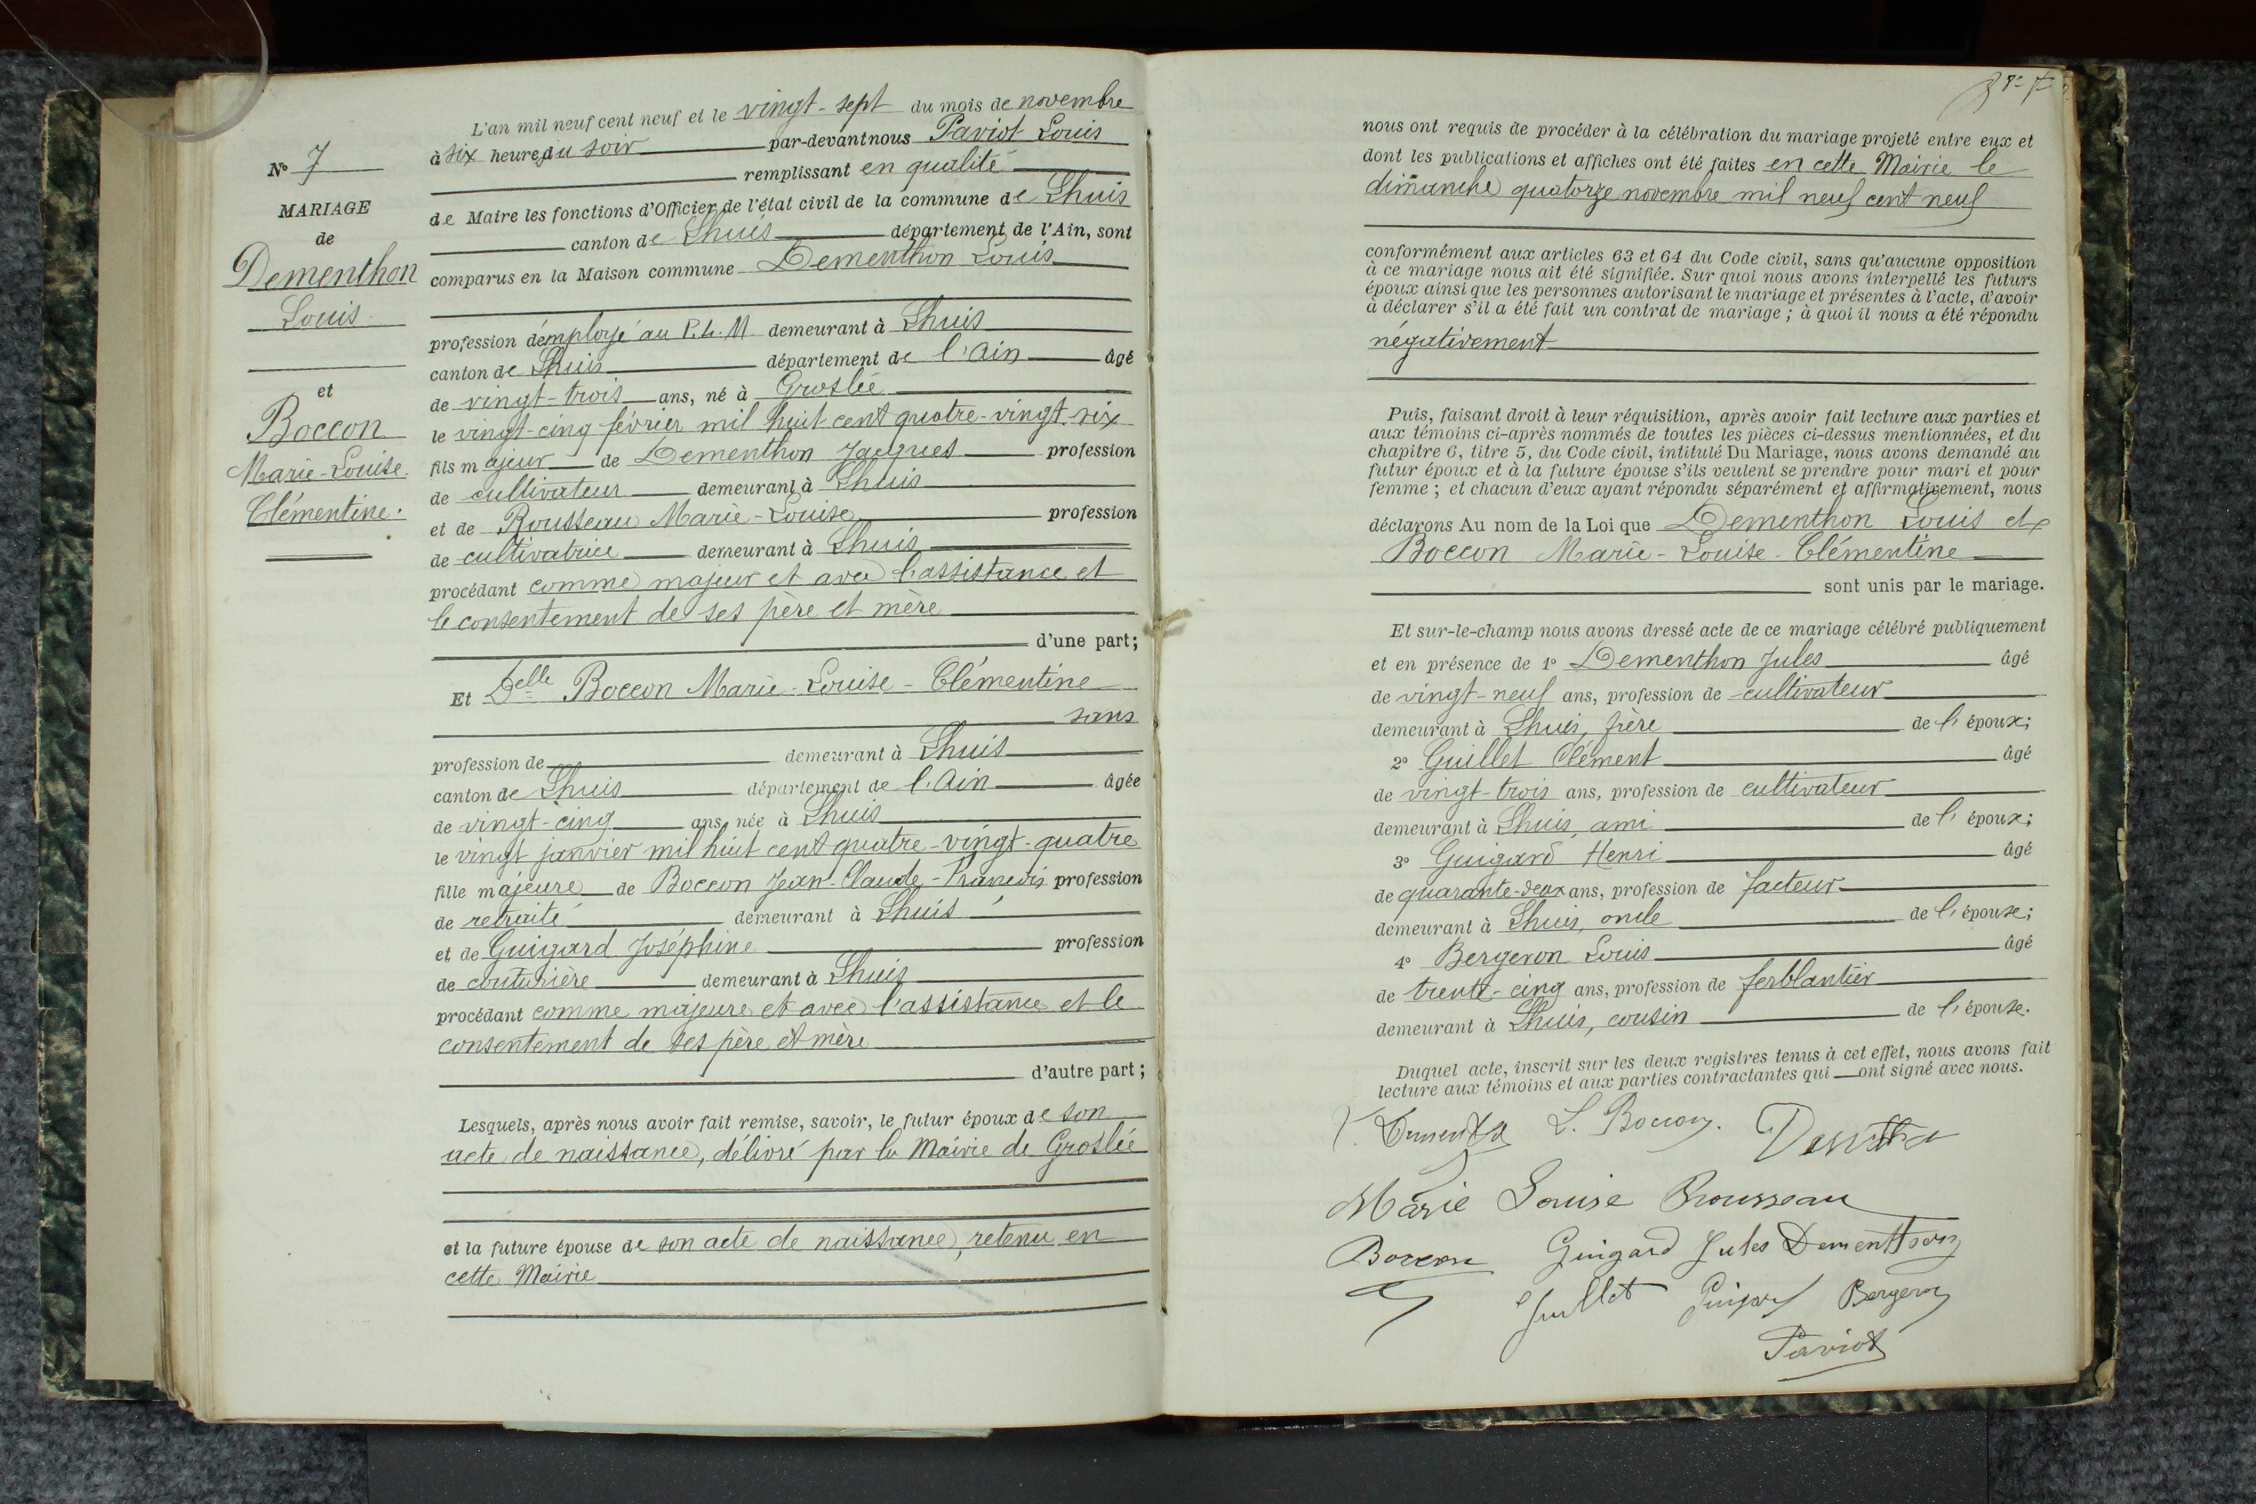 L'an mil neuf cent neuf et le vingt-sept du mois de novembre
à six heures du soir par-devant nous Paviot Louis
remplissant en qualité
de Maire les fonctions d'Officier de l'état civil de la commune de Lhuis
canton de Lhuis département de l'Ain, sont
comparus en la Maison commune Dementhon Louis
profession d'employé au P.L.M demeurant à Lhuis
canton de Lhuis département de l'Ain âgé
de vingt-trois ans, né à Groslée
le vingt-cinq février mil huit cent quatre-vingt-six
fils majeur de Dementhon Jacques profession
de cultivateur demeurant à Lhuis
et de Rousseau Marie-Louise profession
de cultivatrice demeurant à Lhuis
procédant comme majeur et avec l'assistance et
le consentement de ses père et mère
d'une part;
Et Delle Boccon Marie-Louise-Clémentine
sans
profession de demeurant à Lhuis
canton de Lhuis département de l'Ain âgée
de vingt-cinq ans, née à Lhuis
le vingt janvier mil huit cent quatre-vingt-quatre
fille majeure de Boccon Jean-Claude-Francois profession
de retraité demeurant à Lhuis
et de Guigard Joséphine profession
de couturière demeurant à Lhuis
procédant comme majeure et avec l'assistance et le
consentement de ses père et mère
d'autre part;
Lesquels, après nous avoir fait remise, savoir, le futur époux de son
acte de naissance, délivré par la Mairie de Groslée
et la future épouse de son acte de naissance, retenu en
cette Mairie
No 7
MARIAGE
de
Dementhon
Louis
et
Boccon
Marie-Louise
Clémentine.
nous ont requis de procéder à la célébration du mariage projeté entre eux et
dont les publications et affiches ont été faites en cette Mairie le
dimanche quatorze novembre mil neuf cent neuf
conformément aux articles 63 et 64 du Code civil, sans qu'aucune opposition
à ce mariage nous ait été signifiée. Sur quoi nous avons interpellé les futurs
époux ainsi que les personnes autorisant le mariage et présentes à l'acte, d'avoir
à déclarer s'il a été fait un contrat de mariage; à quoi il nous a été répondu
négativement
Puis, faisant droit à leur réquisition, après avoir fait lecture aux parties et
aux témoins ci-après nommés de toutes les pièces ci-dessus mentionnées, et du
chapitre 6, titre 5, du Code civil, intitulé Du Mariage, nous avons demandé au
futur époux et à la future épouse s'ils veulent se prendre pour mari et pour
femme; et chacun d'eux ayant répondu séparément et affirmativement, nous
déclarons Au nom de la Loi que Dementhon Louis et
Boccon Marie-Louise-Clémentine
sont unis par le mariage.
Et sur-le-champ nous avons dressé acte de ce mariage célébré publiquement
et en présence de 1o Dementhon Jules âgé
de vingt-neuf ans, profession de cultivateur
demeurant à Lhuis, frère de l'époux;
2o Guillet Clément âgé
de vingt-trois ans, profession de cultivateur
demeurant à Lhuis, ami de l'époux;
3o Guigard Henri âgé
de quarante-deux ans, profession de facteur
demeurant à Lhuis, oncle de l'épouse;
4o Bergeron Louis âgé
de trente-cinq ans, profession de ferblantier
demeurant à Lhuis, cousin de l'épouse.
Duquel acte, inscrit sur les deux registres tenus à cet effet, nous avons fait
lecture aux témoins et aux parties contractantes qui ont signé avec nous.
L. Boccon.
Marie Louise Rousseau
Boccon Guigard Jules Dementhon
Guillet Guigard Bergeron
Paviot